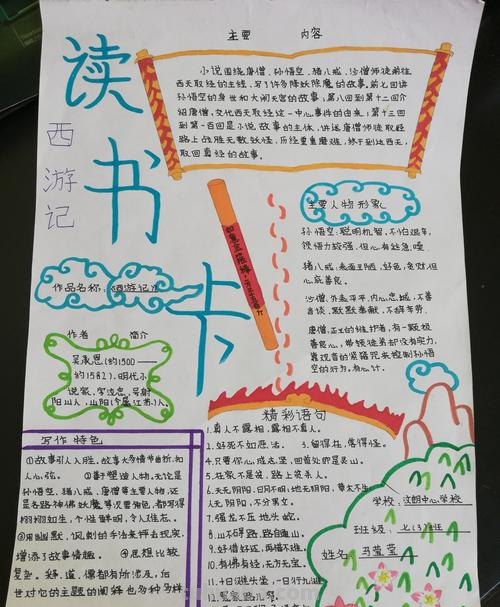 读书卡
西游记
主要 内容
小说围绕唐僧、孙悟空、猪八戒、沙僧师徒前往
西天取经的主线，写了许多降妖除魔的故事。前七回讲
孙悟空的身世和大闹天宫的故事；第八回到第十二回介
绍唐僧，交代西天取经这一中心事件的由来；第十三回
到第一百回是小说故事的主体，讲述唐僧师徒取经
路上战胜无数妖怪，历经重重磨难，终于到达西天，
取回真经的故事。
作品名称：《西游记》
主要人物形象
孙悟空：聪明机智，不怕艰辛，
领悟力较强，但心有处急噪
猪八戒：表面丑陋，好色，贪财，但
心底善良。
沙僧：外表平平，内心忠诚，不善
言谈，默默奉献，不辞辛劳。
唐僧：正义的维护者，有一颗极
善良心，带领徒弟却没有实力，
靠观音的紧箍咒来控制孙悟
空的行为。有心计。
作者 简介
吴承恩（约1500——
约1582），明代小
说家，字汝忠，号射
阳山人，山阳（今属江苏）人。
写作特色
①故事引人入胜，故事大多情节曲折，扣
人心弦。 ②善于塑造人物，无论是
孙悟空、猪八戒、唐僧等主要人物，还
是各路神佛妖魔等次要角色，都写得
栩栩如生，个性鲜明，令人难忘。
③用幽默、讽刺的手法来抨击现实，
增添了故事情趣。 ④思想比较
复杂。释、道、儒都有所涉及，后
世对它的主题的阐释也多种多样
精彩语句
1.真人不露相，露相不真人。
2.好死不如恶活。 3.留得在，落得在。
4.只要你心成志坚，回首处即是灵山。
5.在家不是贫，路上贫杀人。
6.天无阴阳，日月不明；地无阴阳，草木不生；
人无阴阳，不分男女。
7.强龙不压地头蛇
8.山不碍路，路自通山。
9.好借好还，再借不难。
10.有佛有经，无方无宝
11.十日滩头坐，一日行九滩
学校：汶朗中心学校
班级：七（3）班
姓名：马莹莹